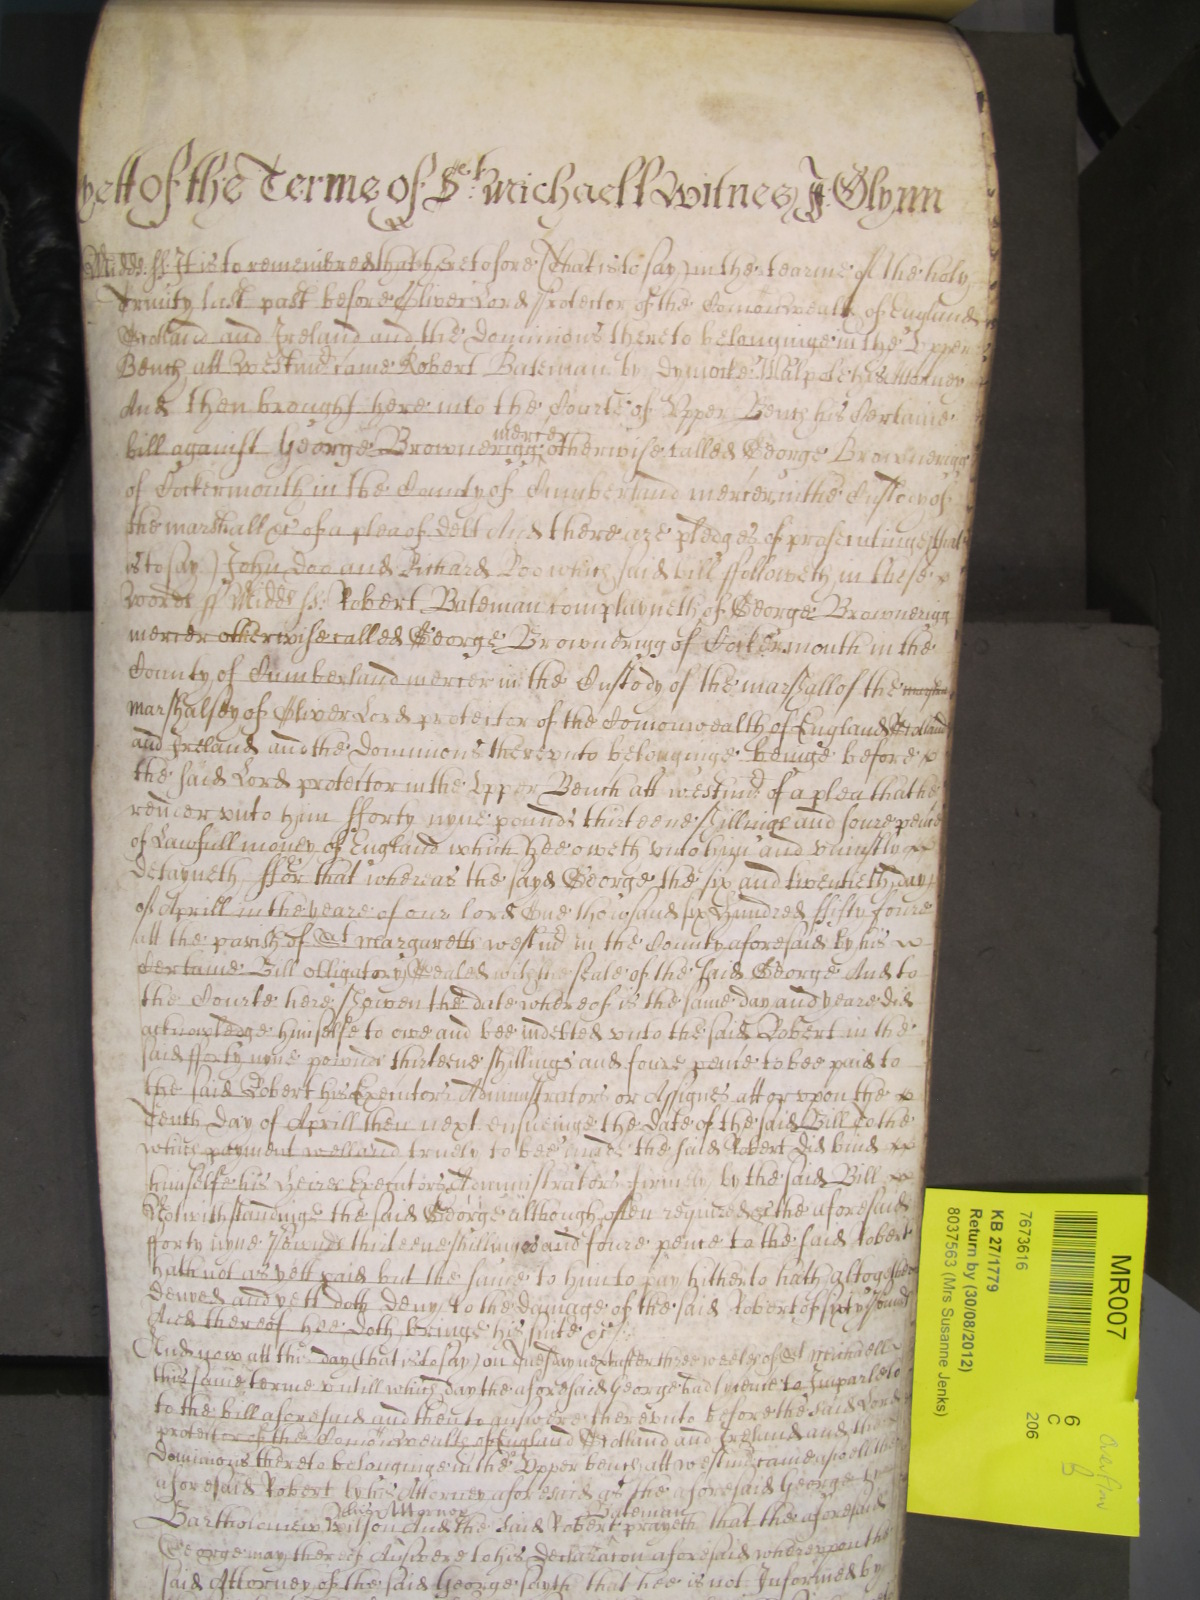 yett of the Terme of St. Michaell Witnes J: Glynn
Midds. ss. It is to remembred that heretofore (that is to say) in the tearme of the holy
Trinity last past before Oliver Lord Protector of the Comonwealth of England
Scotland and Ireland and the Dominions thereto belonginge in the Upper
Bench att Westmr came Robert Bateman by Dymocke Walpole his Attorney
And then brought here into the Courte of Upper Bench his Certaine
bill against George Brownerigg mercer otherwise called George Brownerigg
of Cockermouth in the County of Cumberland mercer in the Custody of
the marshall &c of a plea of debt And there are pledges of prosecutinge (that
is to say) John Doo and Richard Roo which said bill ffolloweth in these
words ss Midds ss: Robert Bateman complayneth of George Brownerigg
mercer otherwise called George Brownerigg of Cockermouth in the
County of Cumberland mercer in the Custody of the marshall of the
marshalsey of Oliver Lord protector of the Comonwealth of England Scotland
and Ireland and the Dominions thereunto belonginge beinge before
the said Lord protector in the Upper Bench att Westmr of a plea that he
render unto him fforty nyne pounds thirteene shillinge and foure pence
of Lawfull money of England which hee oweth unto him and uniustly
detayneth ffor that whereas the sayd George the six and twentieth day
of Aprill in the yeare of our lord One thousand six hundred ffifty foure
att the parish of St margaretts westmr in the County aforesaid by his
Certaine Bill obligatory Sealed with the seale of the said George And to
the Courte here showen the date whereof is the same day and yeare did
acknowledge himselfe to owe and bee indebted unto the said Robert in the
said fforty nyne pownds thirteene shillings and foure pence to bee paid to
the said Robert his Executors Administrators or Assignes att or upon the
Tenth Day of Aprill then next ensueinge the Date of the said Bill To the
which payment well and truely to bee made the said Robert did bind
himselfe his heires Executors Administrators firmely by the said Bill
Notwithstandinge the said George although often required the aforesaid
fforty nyne Pownds thirteene shillings and foure pence to the said Robert
hath not as yett paid but the same to him to pay hitherto hath altogether
denyed and yett doth deny to the damage of the said Robert of sixty pounds
And thereof hee doth bringe his suite &c
And now att this day (that is to say) on Tuesday next after three weekes of St Michaell
this same terme untill which day the aforesaid George had lycence to Imparle to
to the bill aforesaid and then to answere thereunto before the said Lord
protector of the Comonwealth of England Scotland and Ireland and the
Dominions thereto belonginge in the Upper bench att westmr came aswell the
aforesaid Robert by his Attorney aforesaid as the aforesaid George by
Bartholomew Wilson his Attorney And the said Robert Bateman prayeth that the aforesaid
George may thereof Answere to his Declaracon aforesaid whereuppon the
said Attorney of the said George sayth that hee is not Informed by
MR007
7673616
KB 27/1779
Return by (30/08/2012)
8037563 (Mrs Susanne Jenks)
6
C
206